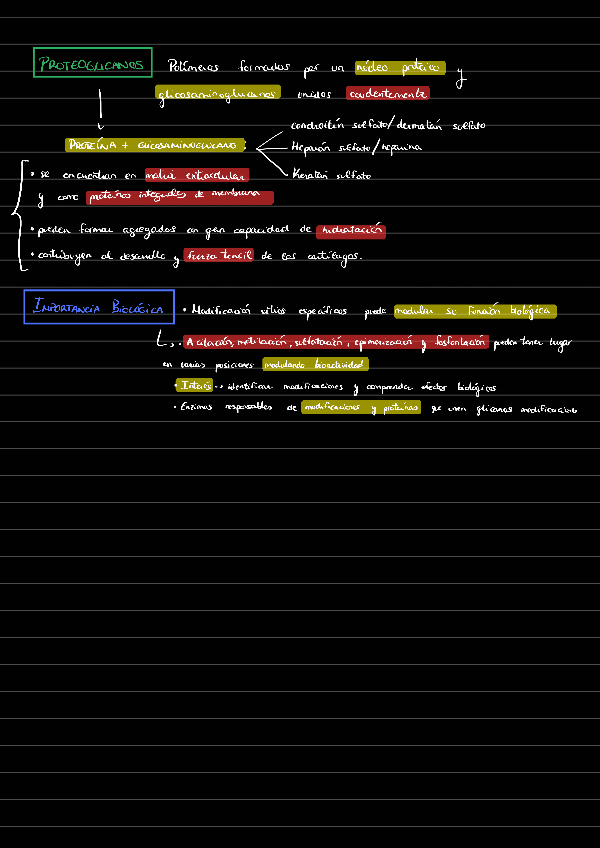 PROTEOGLICANOS Polímeros formados por un núcleo proteico y
glicosaminoglucanos unidos covalentemente
condroitín sulfato/dermatán sulfato
PROTEÍNA + GLICOSAMINOGLICANO Heparán sulfato/heparina
Keratán sulfato
• se encuentran en matriz extracelular
y como proteínas integrales de membrana
• pueden formar agregados con gran capacidad de hidratación
• contribuyen al desarrollo y fuerza tensil de los cartílagos.
IMPORTANCIA BIOLÓGICA • Modificación sitios específicos puede modular su función biológica
• Acilación, metilación, sulfatación, epimerización y fosforilación pueden tener lugar
en varias posiciones modulando bioactividad
• Interés → identificar modificaciones y comprender efectos biológicos
• Enzimas responsables de modificaciones y proteínas que unen glicanos modificados